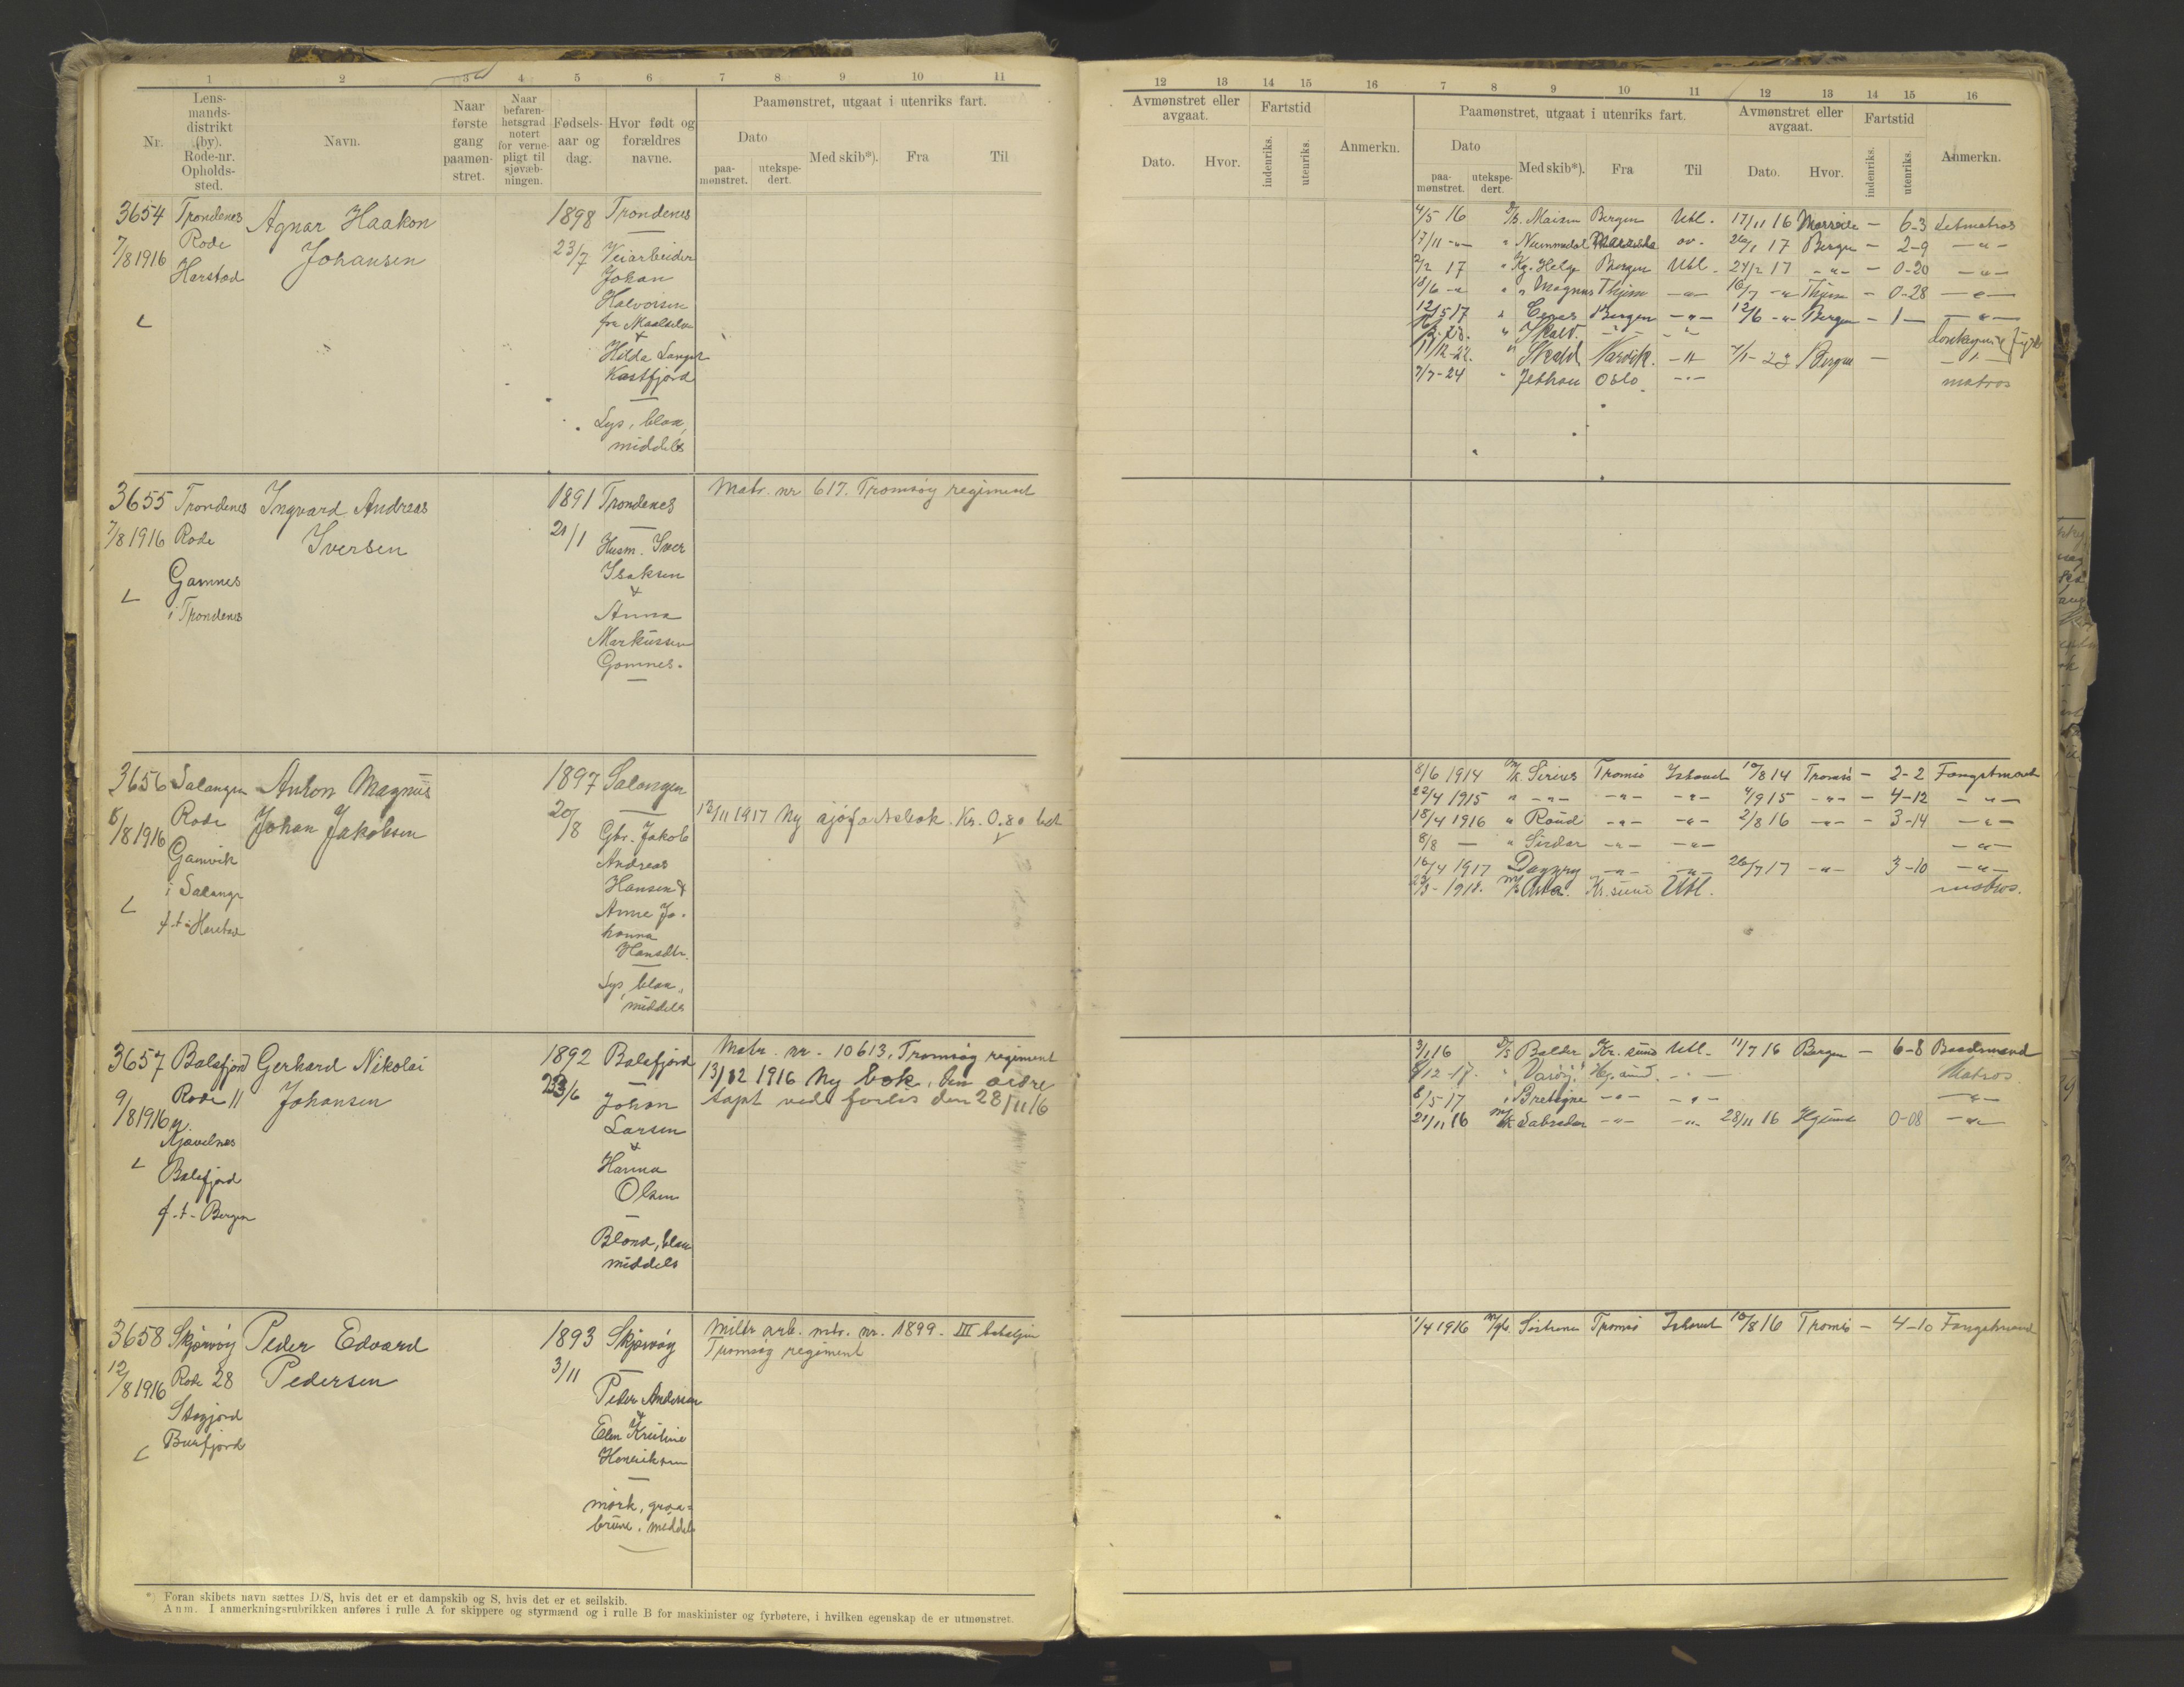 1 2 3 4 5 6 7 8 9 10 11
Nr.
Lens-
mands-
distrikt
(by).
Rode-nr.
Opholds-
sted.
Navn.
Naar
første
gang
paamøn-
stret.
Naar
befaren-
hetsgrad
notert
for verne-
pligt til
sjøvæb-
ningen.
Fødsels-
aar og
dag.
Hvor født og
forældres
navne.
Paamønstret, utgaat i utenriks fart.
Dato
paa-
mønstret.
utekspe-
dert.
Med skib*).
Fra
Til
3654 Trondenes Agnar Haakon 1898 Trondenes
7/8 1916 Rode Johansen 23/7 Veiarbeider
Harstad Johan
Halvorsen
fra Maalselven
&
Hilda
Kastfjord
Lys, blaa,
middels
3655 Trondenes Ingvard Andreas 1891 Trondenes Matr. nr 617. Tromsøy regiment
7/8 1916 Rode Iversen 21/1 Husm. Iver
Gamnes Isaksen
i Trondenes &
Anna
Markussen
Gamnes.
3656 Salangen Anton Magnus 1897 Salangen
8/8 1916 Rode Johan Jakobsen 20/8 Gbr. Jakob 13/11 1917 Ny sjøfartsbok. Kr. 0.80 bet
Gamvik Andreas
i Salangn Hansen &
f.t. Harstad Anne Jo-
hanna
Hansdtr.
Lys, blaa,
middels
3657 Balsfjord Gerhard Nikolai 1892 Balsfjord Matr. nr. 10613, Tromsøy regiment
9/8 1916 Rode 11 Johansen 23/6 Johan 13/12 1916 Ny bok, den ældre
Larsen tapt ved forlis den 28/11 16
Balsfjord &
f.t. Bergen Hanna
Olsen
Blond, blaa
middels
3658 Skjervøy Peder Edvard 1893 Skjervøy Miltr arb. mtr. nr. 1899. III bataljon
12/8 1916 Rode 28 Pedersen 3/11 Peder Andersen Tromsøy regiment
Burfjord &
Elen Kristine
Henriksen
mørk, graa-
brune. middels
*) Foran skibets navn sættes D/S, hvis det er et dampskib og S, hvis det er et seilskib.
Anm. I anmerkningsrubrikken anføres i rulle A for skippere og styrmænd og i rulle B for maskinister og fyrbøtere, i hvilken egenskap de er utmønstret.
12 13 14 15 16 7 8 9 10 11 12 13 14 15 16
Avmønstret eller
avgaat.
Dato.
Hvor.
Fartstid
indenriks.
utenriks.
Anmerkn.
Paamønstret, utgaat i utenriks fart.
Dato
paa-
mønstret.
utekspe-
dert.
Med skib*).
Fra
Til
Avmønstret eller
avgaat.
Dato.
Hvor.
Fartstid
indenriks.
utenriks.
Anmerkn.
4/5 16 D/S. Bergen Utl. 17/11 16 - 6-3 Letmatros
17/11 -"- " Nummedal ov. 26/1 17 Bergen - 2-9 -"-
2/2 17 " Kg. Helge Bergen Utl. 24/2 17 -"- - 0-20 -"-
18/6 -" " " Magnus Thjem -"- 16/7 -"- Thjem - 0-28 -"-
12/5 17 " Ceres Bergen -"- 12/6 -"- Bergen - 1 - -"-
" Skald. -"- -"-
11/12-22. " Skald Narvik. -"- 7/1-23 Bergen - -"-
7/7-24 " Jethou Oslo. -"- matros
8/6 1914 M/K. Sirius Tromsö Ishavet 10/8 14 Tromsö - 2-2 Fangstmand
22/4 1915 " -"- -"- -"- 4/9 15 -"- - 4-12 -"-
18/4 1916 " Roald -"- -"- 2/8 16 -"- - 3-14 -"-
8/8 - " Sirdar -"- -"- -"-
16/4 1917 Dagny -"- -"- 26/7 17 -"- 3-10 -"-
1918. Kr. sund Utl. matros.
3/1 16 D/S Balder Kr. sund Utl. 11/7 16 Bergen - 6-8 Baadsmand
8/12-17. " Varöy. Hg. sund. -"- Matros
8/5-17 " Bretagne -"- -"- -"-
21/11 16 M/K Labrador -"- -"- 28/11 16 Hgsund 0-08 -"-
1/4 1916 Söstrene Tromsö Ishavet 10/8 16 Tromsö - 4-10 Fangstmand